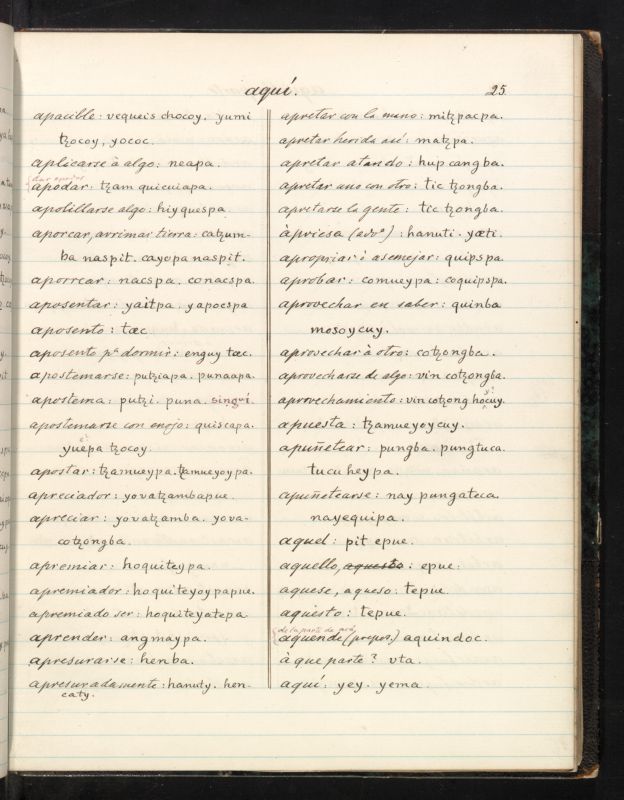 aquí.
25.
apacible: vequeis chocoy. yumi
tꜩocoy, yococ.
aplicarse à algo: neapa.
dar apodos
apodar: tꜩam quicuiapa.
apolillarse algo: hiyquespa.
aporcar, arrimar tierra: catꜩum-
ba naspit. cayopa naspit.
aporrear: nacspa. conacspa.
aposentar: yaitpa. yapoespa
aposento: tæc
aposento pª dormir: enguy tæc.
apostemarse: putꜩiapa. punaapa.
apostema: putꜩi. puna. singuí.
apostemarse con enojo: quiscapa.
yuepa tꜩocoy.
apostar: tꜩamueypa. tꜩamueyoypa.
apreciador: yovatꜩambapue.
apreciar: yovatꜩamba. yova-
cotꜩongba.
apremiar: hoquiteypa.
apremiador: hoquiteyoypapue.
apremiado ser: hoquiteyatepa.
aprender: angmaypa.
apresurarse: henba.
apresuradamente: hanuty. hen-
caty.
apretar con la mano: mitꜩpacpa.
apretar herida asi: matꜩpa.
apretar atando: hup cangba.
apretar uno con otro: tic tꜩongba.
apretarse la gente: tic tꜩongba.
àpriesa (advº): hanuti. yæti.
apropriar ò asemejar: quipspa.
aprobar: comueypa: coquipspa.
aprovechar en saber: quinba
mosoycuy.
aprovechar à otro: cotꜩongba.
aprovecharse de algo: vin cotꜩongba.
aprovechamiento: vin cotꜩong hocuy.
apuesta: tꜩamueyoycuy.
apuñetear: pungba. pungtuca.
tucuheypa.
apuñetearse: nay pungateca.
nayequipa.
aquel: pit epue.
aquello, aquesto: epue.
aquese, aqueso: tepue.
aquesto: tepue.
aquende (prepos.) aquindoc.
à que parte? vta.
aquí: yey. yema.